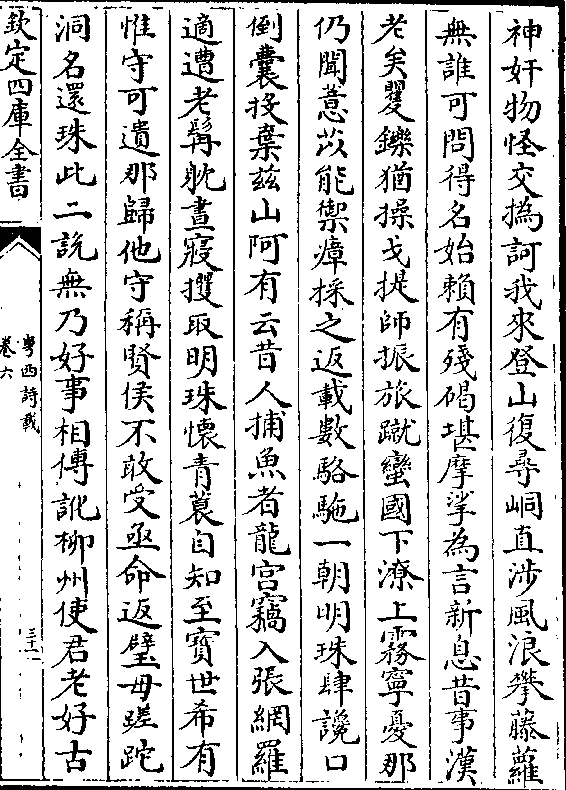 神奸物怪交撝訶我來登山復尋峒直涉風浪攀藤蘿
無誰可問得名始賴有殘碣堪摩挲為言新息昔事漢
老矣矍鑠猶操戈提師振旅蹴蠻國下潦上霧寧憂那
仍聞薏苡能禦瘴採之返載數駱駞一朝明珠肆讒口
倒囊投棄兹山阿有云昔人捕魚者龍宫竊入張網羅
適遭老髯躭晝寢攫取明珠懷青蓑自知至寶世希有
惟守可遺那歸他守稱賢侯不敢受亟命返璧毋蹉跎
洞名還珠此二説無乃好事相傳訛柳州使君老好古
欽定四庫全書
粤西詩載
卷六
三十一